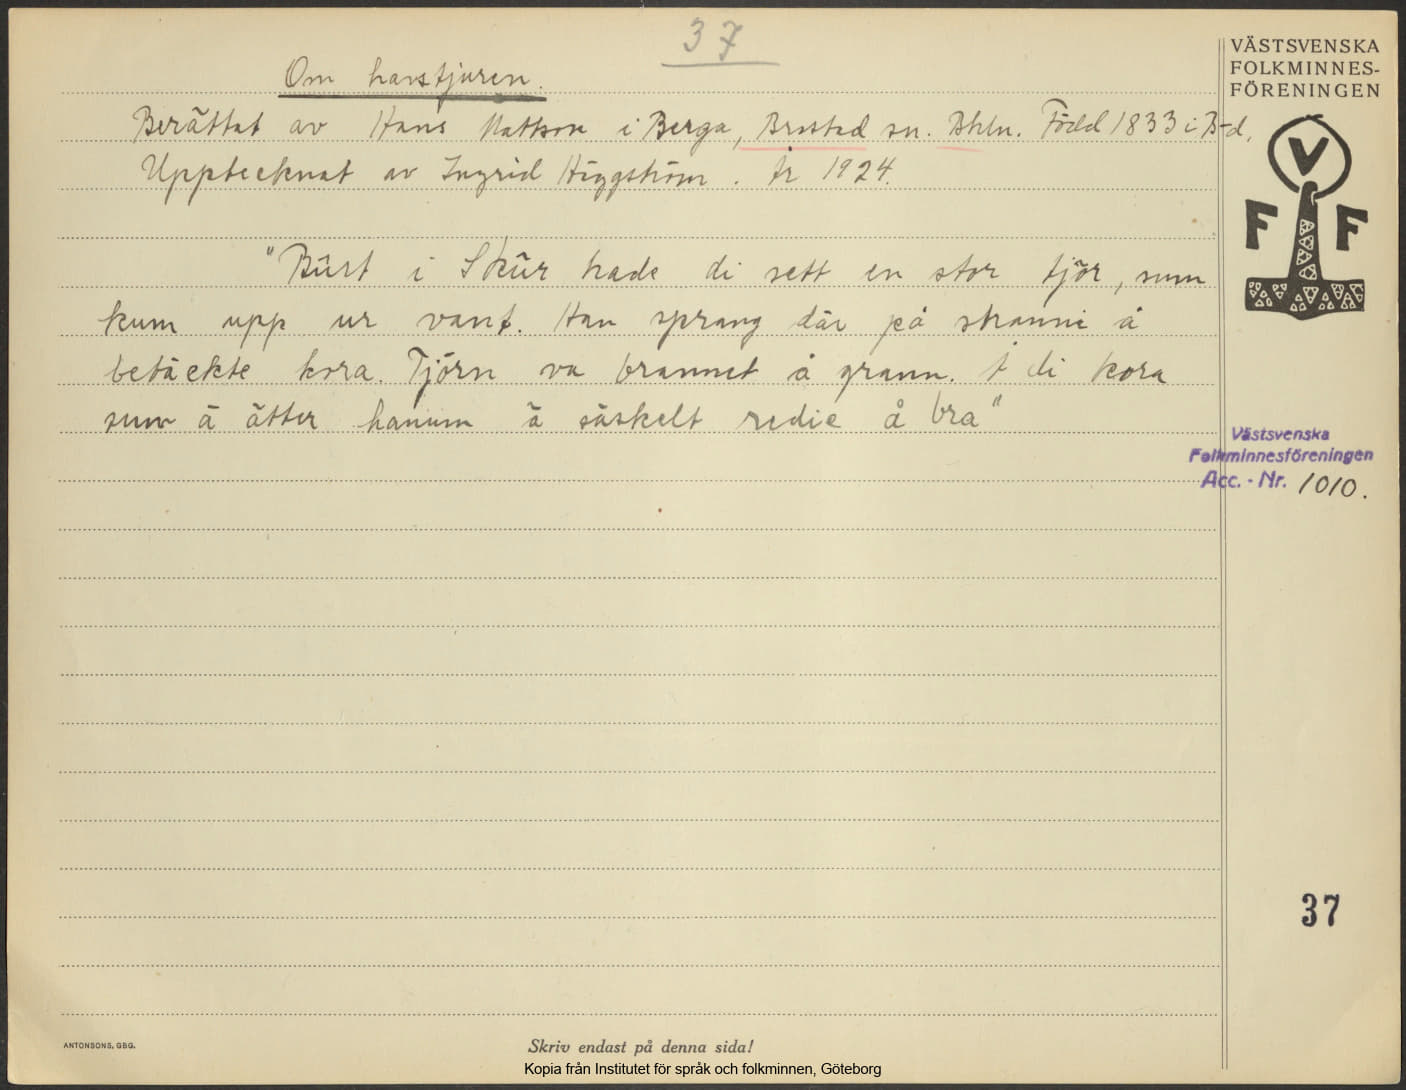 37
VÄSTSVENSKA
FOLKMINNES-
FÖRENINGEN
Om havstjuren.
Berättat av Hans Mattson i Berga, Brastad sn. Bhln. Född 1833 i B-d.
Upptecknat av Ingrid Häggström. År 1924.
V
F F
"Bûrt i Skûr hade di sett en stor tjör, sum
kum upp ur vant. Han sprang där på stranni å
betäckte kora. Tjörn va brannet å grann. Å di kora
sum ä ätter hanum ä säskelt redie å bra"
Västsvenska
Folkminnesföreningen
Acc. - Nr. 1010.
37
ANTONSONS, GBG.
Skriv endast på denna sida!
Kopia från Institutet för språk och folkminnen, Göteborg